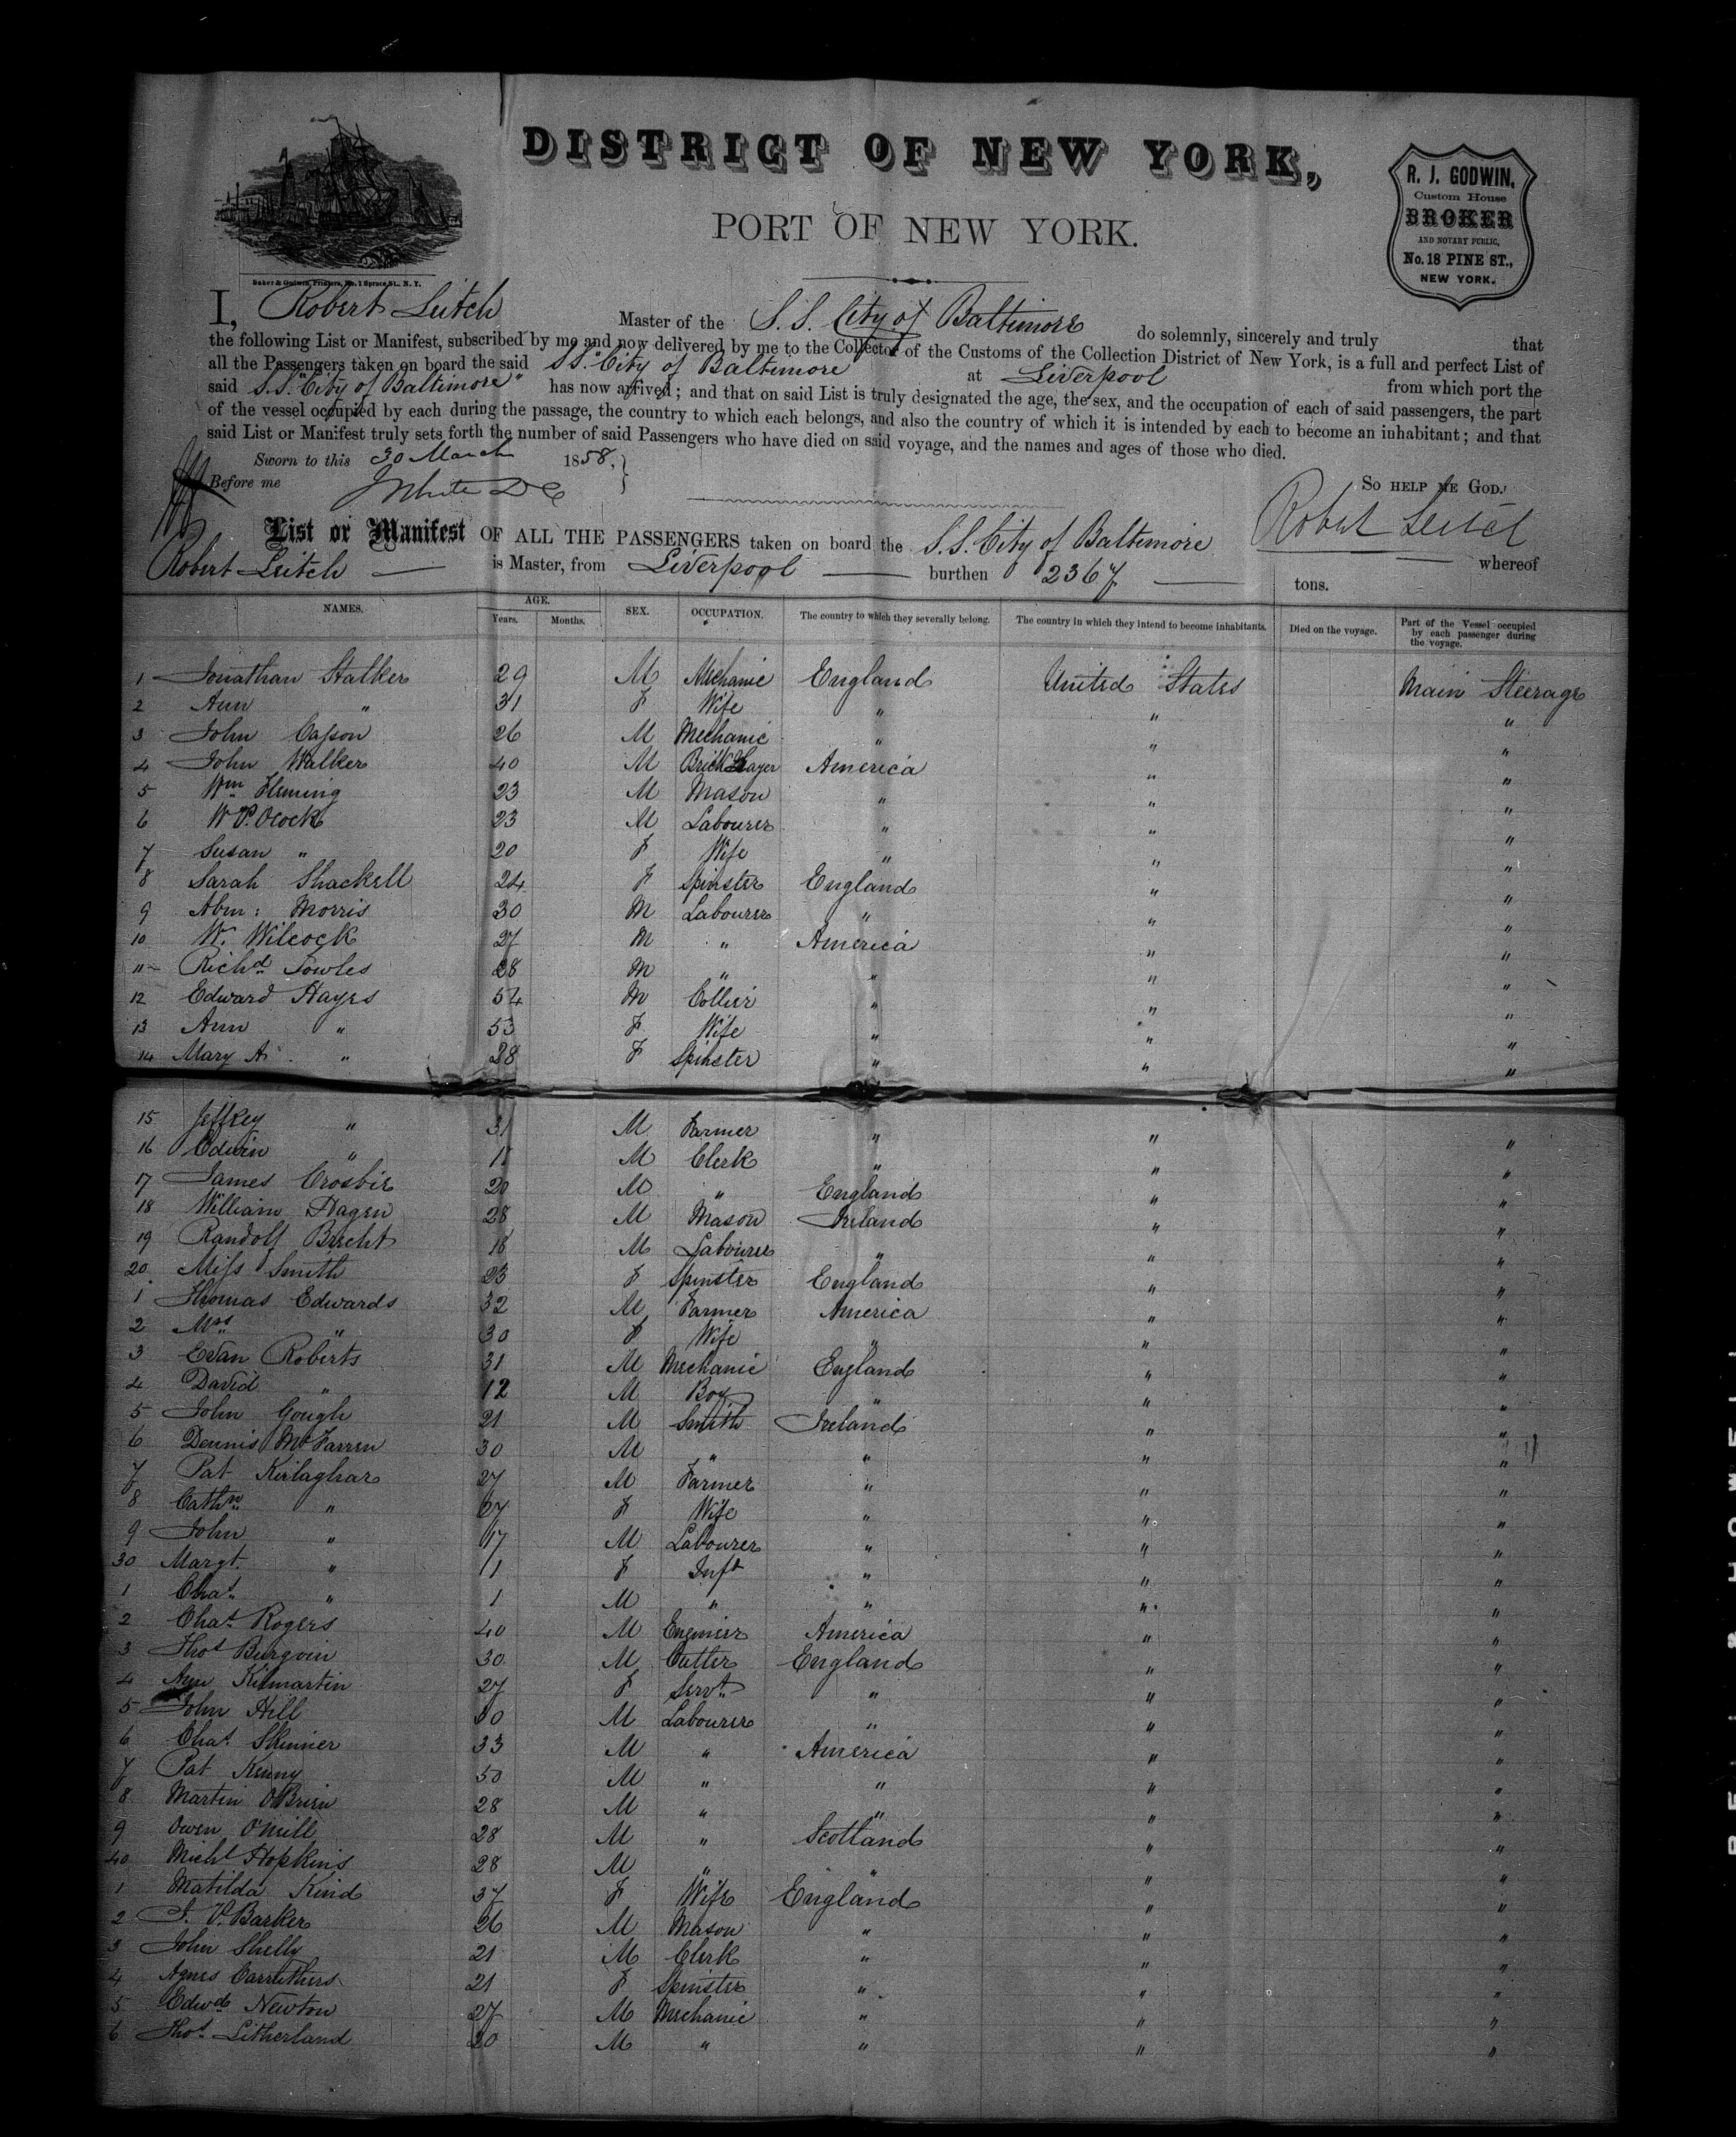 DISTRICT OF NEW YORK,
PORT OF NEW YORK.
R. J. GODWIN,
Custom House
BROKER
AND NOTARY PUBLIC,
No. 18 PINE ST.,
NEW YORK.
Baker & Godwin, Printers, No. 1 Spruce St., N. Y.
I, Robert Leitch Master of the S. S. City of Baltimore do solemnly, sincerely and truly that
the following List or Manifest, subscribed by me and now delivered by me to the Collector of the Customs of the Collection District of New York, is a full and perfect List of
all the Passengers taken on board the said S.S. "City of Baltimore at Liverpool from which port the
said S.S. "City of Baltimore" has now arrived; and that on said List is truly designated the age, the sex, and the occupation of each of said passengers, the part
of the vessel occupied by each during the passage, the country to which each belongs, and also the country of which it is intended by each to become an inhabitant; and that
said List or Manifest truly sets forth the number of said Passengers who have died on said voyage, and the names and ages of those who died.
Sworn to this 30 March 1858,
Before me J White D C
So HELP ME GOD.
Robert Leitch
List or Manifest OF ALL THE PASSENGERS taken on board the S.S. City of Baltimore whereof
Robert Leitch is Master, from Liverpool burthen 2367 tons.
NAMES. AGE. Years. Months. SEX. OCCUPATION. The country to which they severally belong. The country in which they intend to become inhabitants. Died on the voyage. Part of the Vessel occupied by each passenger during the voyage.
1 Jonathan Stalker 29 M Mechanic England United States Main Steerage
2 Ann " 31 F Wife " " "
3 John Casson 26 M Mechanic " " "
4 John Walker 40 M Brick Layer America " "
5 Wm Fleming 23 M Mason " " "
6 W P. Ocock 23 M Labourer " " "
7 Susan " 20 F Wife " " "
8 Sarah Shackell 24 F Spinster England " "
9 Abm: Morris 30 M Labourer " " "
10 W. Wilcock 27 M " America " "
11 Richd Towles 28 M " " " "
12 Edward Hayes 54 M Collier " " "
13 Ann " 53 F Wife " " "
14 Mary A. " 28 F Spinster " " "
15 Jeffrey " 31 M Farmer " " "
16 Edwin " 11 M Clerk " " "
17 James Crosbie 20 M " England " "
18 William Hagen 28 M Mason Ireland " "
19 Randolf Brecht 18 M Labourer " " "
20 Miss Smith 23 F Spinster England " "
1 Thomas Edwards 32 M Farmer America " "
2 Mrs " 30 F Wife " " "
3 Evan Roberts 31 M Mechanic England " "
4 David " 12 M Boy " " "
5 John Gough 21 M Smith Ireland " "
6 Dennis McFarren 30 M " " " "
7 Pat Kirlaghar 27 M Farmer " " "
8 Cathn " 27 F Wife " " "
9 John " 17 M Labourer " " "
30 Margt. " 11 F Inft " " "
1 Chas. " 1 M " " " "
2 Chas Rogers 40 M Engineer America " "
3 Thos Burgoin 30 M Cutler England " "
4 Ann Kilmartin 27 F Servt. " " "
5 John Hill 30 M Labourer " " "
6 Chas. Skinner 33 M " America " "
7 Pat Kenny 50 M " " " "
8 Martin O'Brien 28 M " " " "
9 Owen O'Neill 28 M " Scotland " "
40 Michl Hopkins 28 M " " " "
1 Matilda Kind 37 F Wife England " "
2 J. P. Barker 26 M Mason " " "
3 John Shelly 21 M Clerk " " "
4 Agnes Carruthers 21 F Spinster " " "
5 Edwd Newton 27 M Mechanic " " "
6 Thos Litherland 20 M " " " "